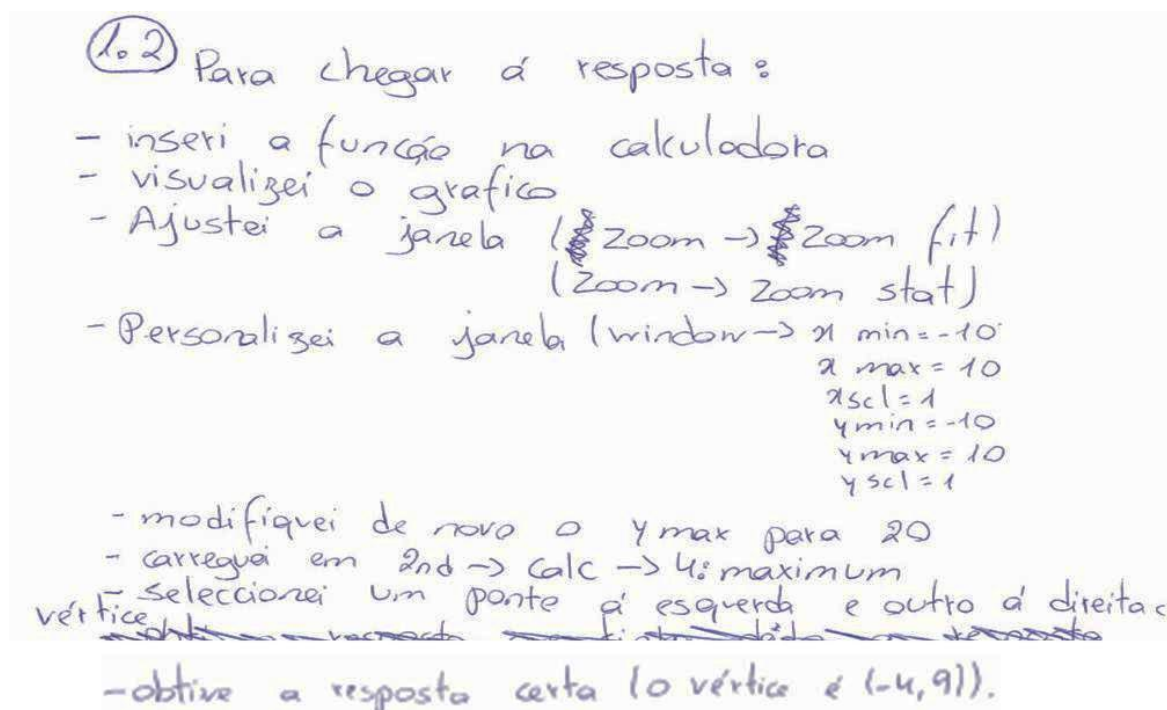 1.2 Para chegar á resposta:
- inseri a função na calculadora
- visualizei o grafico
- Ajustei a janela (Zoom -> Zoom fit)
(Zoom -> Zoom stat)
- Personalizei a janela (window -> x min = -10
x max = 10
xscl = 1
ymin = -10
ymax = 10
yscl = 1
- modifiquei de novo o ymax para 20
- carreguei em 2nd -> calc -> 4: maximum
- seleccionei um ponto á esquerda e outro á direita
vértice
- obtive a resposta certa (o vértice é (-4,9)).